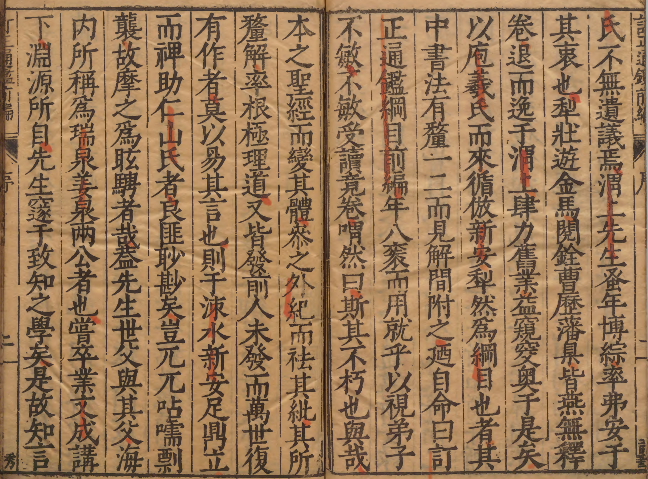 氏不無遺議焉渭上先生蚤年博綜率弗安于
其衷也犁壯遊金馬閱銓曹歷藩臬皆燕無釋
卷退而逸于渭上肆力舊業益窺窔奥于是矣
以庖羲氏而來循倣新安犁然為綱目也者其
中書法有釐一二而見解間附之廼自命曰訂
正通鑑綱目前編年八袠而用就乎以視弟子
不敏不敏受讀竟卷喟然曰斯其不朽也與哉
本之聖經而變其體叅之外紀而袪其紕其所
釐解率根極理道又皆發前人未發而萬世復
有作者莫以易其言也則于涑水新安足鼎立
而裨助仁山氏者良匪眇尠矣豈兀兀呫嚅剽
襲故摩之為眩騁者哉蓋先生世父與其父海
内所稱為瑞泉姜泉兩公者也嘗卒業文成講
下淵源所自先生邃于致知之學矣是故知言
序
二
秀